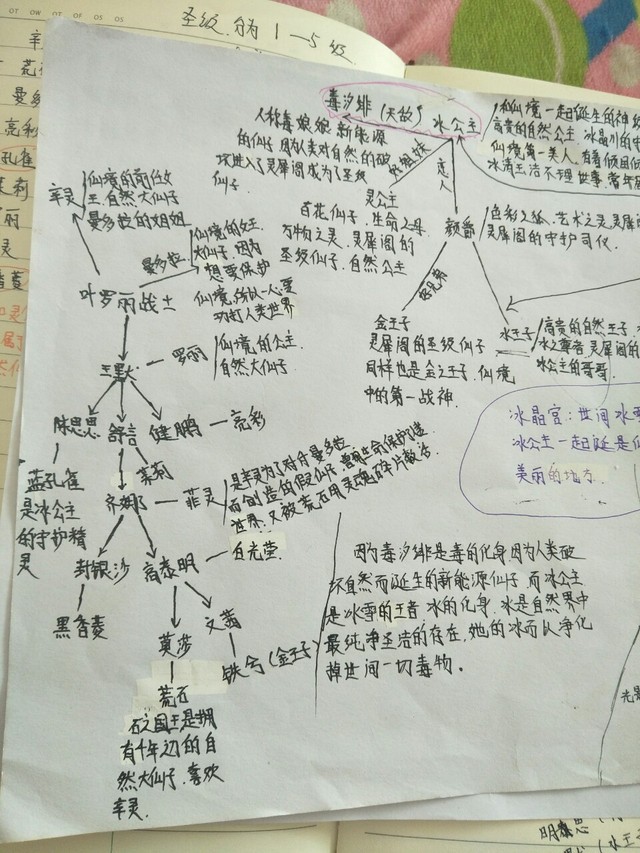 圣级分为1—5级
毒汐绯(天敌)
冰公主
人称毒娘娘,新能源
的仙子,因为人类对自然的破
坏进入了灵犀阁成为了圣级
仙子.
好姐妹
恋人
和仙境一起诞生的神级
高贵的自然公主.冰晶川的
仙境第一美人,有着倾国倾
冰清玉洁不理世事.常年
灵公主
百花仙子,生命之母.
万物之灵,灵犀阁的
圣级仙子.自然公主
颜爵
色彩之张、艺术之灵灵犀
灵犀阁的守护司仪.
好兄弟
金王子
灵犀阁的圣级仙子
同样也是金之王子.仙境
中的第一战神.
水王子
高贵的自然王子.
水之尊者.灵犀阁的
冰公主的哥哥.
冰晶宫:世间冰雪
冰公主一起诞是仙
美丽的地方.
辛灵
仙境的前任女
王,自然大仙子
曼多拉的姐姐
曼多拉
仙境的女王
大仙子,因为
想要保护
仙境,所以一心要
攻打人类世界
叶罗丽战士
王默
罗丽
仙境的公主
自然大仙子
陈思思
舒言
健鹏
亮彩
蓝孔雀
是冰公主
的守护精
灵
茉莉
齐娜
菲灵
是辛灵为了对付曼多拉
而创造的假仙子,曾用生命保护过
世界,又被荒石用灵魂碎片救活
封银沙
高泰明
白光莹
黑香菱
莫莎
文茜
铁兮(金王子)
荒石
石之国王是拥
有千年边的自
然大仙子.喜欢
辛灵.
因为毒汐绯是毒的化身,因为人类破
坏自然而诞生的新能源仙子,而冰公主
是冰雪的王者,冰的化身,冰是自然界中
最纯净圣洁的存在,她的冰而认净化
掉世间一切毒物.
光是
明
思
(水王子